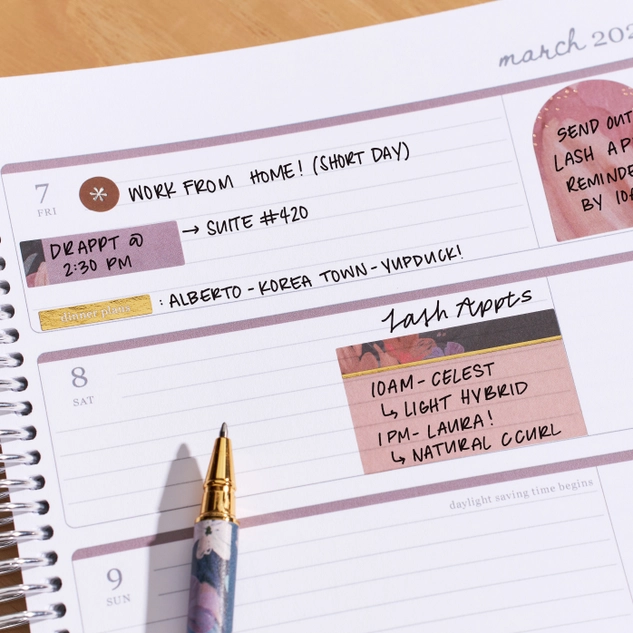 march 202
7
FRI
WORK FROM HOME! (SHORT DAY)
DR APPT @
2:30 PM
→ SUITE #420
dinner plans
: ALBERTO - KOREA TOWN - YUPDUCK!
SEND OUT
LASH AP
REMINDE
BY 10A
8
SAT
Lash Appts
10AM - CELEST
↳ LIGHT HYBRID
1PM - LAURA!
↳ NATURAL CCURL
daylight saving time begins
9
SUN